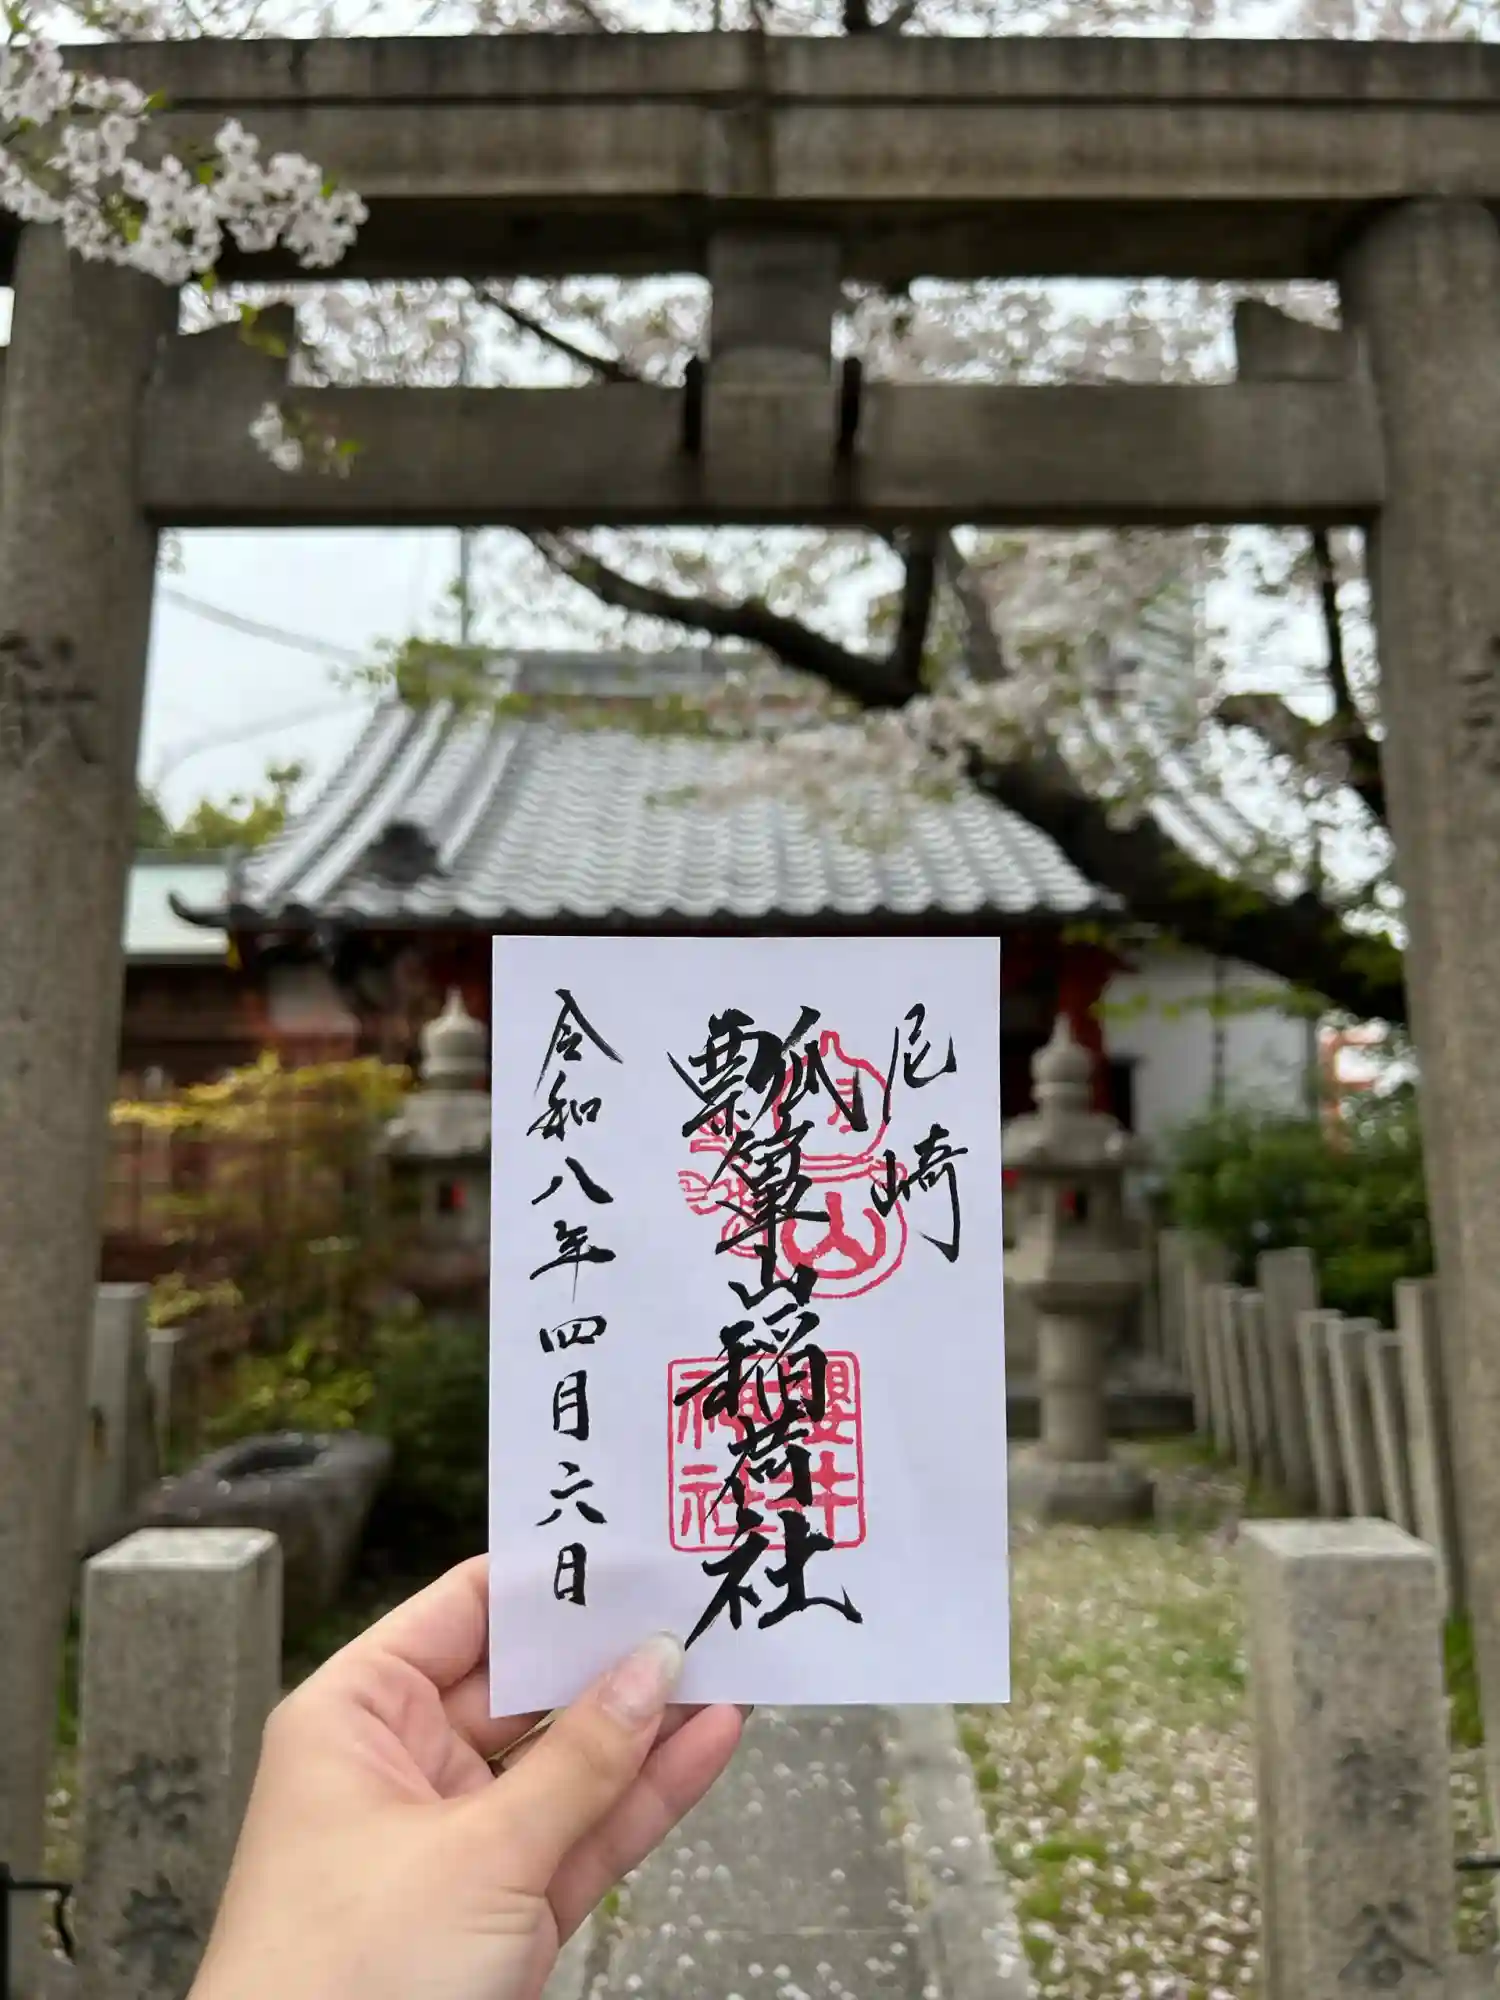 尼崎
瓢箪山稲荷社
櫻井
神社
令和八年四月六日